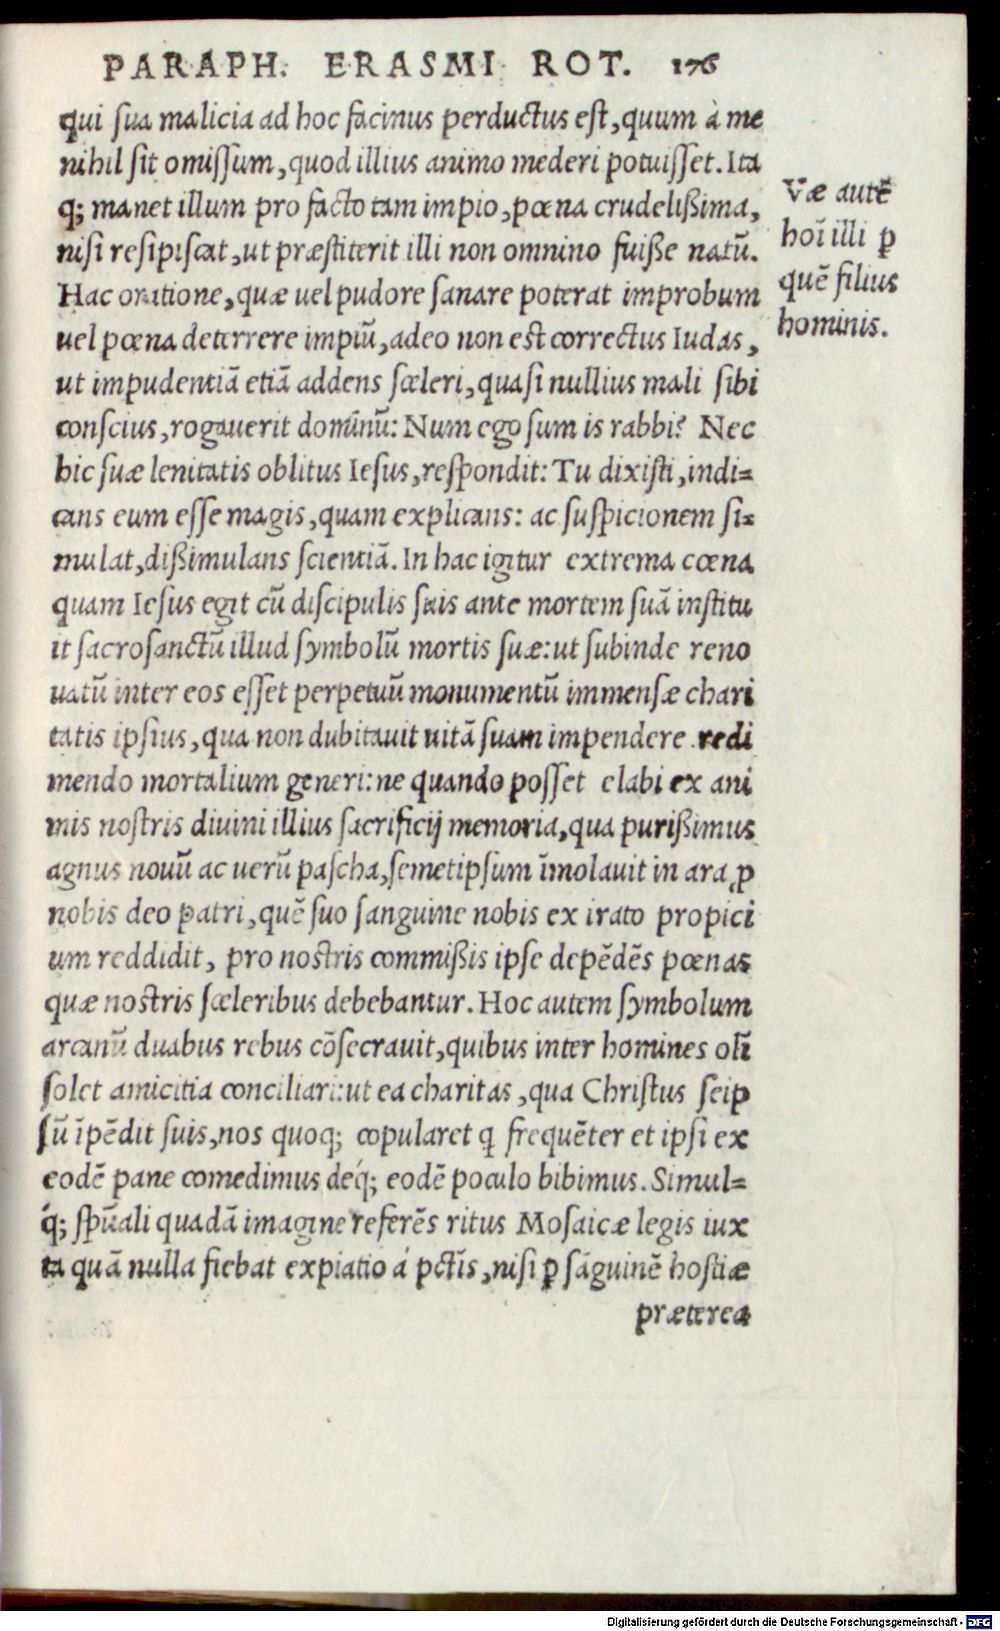 PARAPH. ERASMI ROT. 176
qui sua malicia ad hoc facinus perductus est, quum à me
nihil sit omissum, quod illius animo mederi potuisset. Ita
q; manet illum pro facto tam impio, pœna crudelißima,
nisi resipiscat, ut præstiterit illi non omnino fuiße natū.
Hac oratione, quæ uel pudore sanare poterat improbum
uel pœna deterrere impiū, adeo non est correctus Iudas,
ut impudentiā etiā addens sceleri, quasi nullius mali sibi
conscius, rogauerit dominū: Num ego sum is rabbi? Nec
hic suæ lenitatis oblitus Iesus, respondit: Tu dixisti, indi=
cans eum esse magis, quam explicans: ac suspicionem si=
mulat, dißimulans scientiā. In hac igitur extrema cœna
quam Iesus egit cū discipulis suis ante mortem suā institu
it sacrosanctū illud symbolū mortis suæ: ut subinde reno
uatū inter eos esset perpetuū monumentū immensæ chari
tatis ipsius, qua non dubitauit uitā suam impendere redi
mendo mortalium generi: ne quando posset elabi ex ani
mis nostris diuini illius sacrificij memoria, qua purißimus
agnus nouū ac uerū pascha, semetipsum īmolauit in ara ꝓ
nobis deo patri, quē suo sanguine nobis ex irato propici
um reddidit, pro nostris commißis ipse depēdēs pœnas
quæ nostris sceleribus debebantur. Hoc autem symbolum
arcanū duabus rebus cōsecrauit, quibus inter homines olī
solet amicitia conciliari: ut ea charitas, qua Christus seip
sū īpēdit suis, nos quoq; copularet q frequēter et ipsi ex
eodē pane comedimus deq́; eodē poculo bibimus. Simul=
q́; spūali quadā imagine referēs ritus Mosaicæ legis iux
ta quā nulla fiebat expiatio á pctīs, nisi ꝑ sāguinē hostiæ
præterea
Væ autē
hoī illi ꝑ
quē filius
hominis.
Digitalisierung gefördert durch die Deutsche Forschungsgemeinschaft - DFG